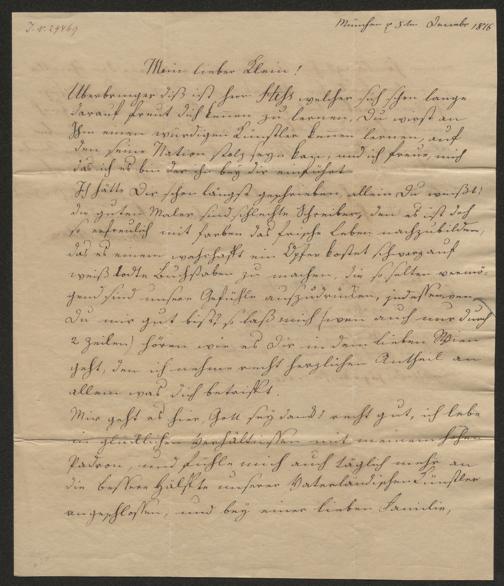 I.N. 29469
München d 5ten Dezember 1816
Mein lieber Klein!
Überbringer diß ist Herr Heß welcher sich schon lange
darauf freut dich kenen zu lernen, Du wirst an
Ihm einen würdigen Künstler kenen lernen, auf
den seine Nation stolz seyn kan, und ich freue mich
das ich es bin der ihn bey dir einführt
Ich hätte Dir schon längst geschrieben, allein Du weißt!
die guten Maler sind schlechte Schreiber, den es ist doch
so erfreulich mit Farben das frische Leben nachzubilden,
das es einem wahrhafft ein Opfer kostet schwarz auf
weiß todte Buchstaben zu machen, die so selten vermö-
gend sind unsere Gefühle auszudrücken, indessen wen
Du mir gut bist, so laß mich (wen auch nur durch
2 Zeilen) hören wie es Dir in dem lieben Wien
geht, den ich nehme recht herzlichen Antheil an
allem was dich betrifft.
Mir geht es hier, Gott sey dank! recht gut, ich lebe
in glücklichen Verhältnissen mit meinem hohen
Padron, und fühle mich auch täglich mehr an
die bessere Hälfte unserer Vaterländischen Künstler
angeschlossen, und bey einer lieben Familie,